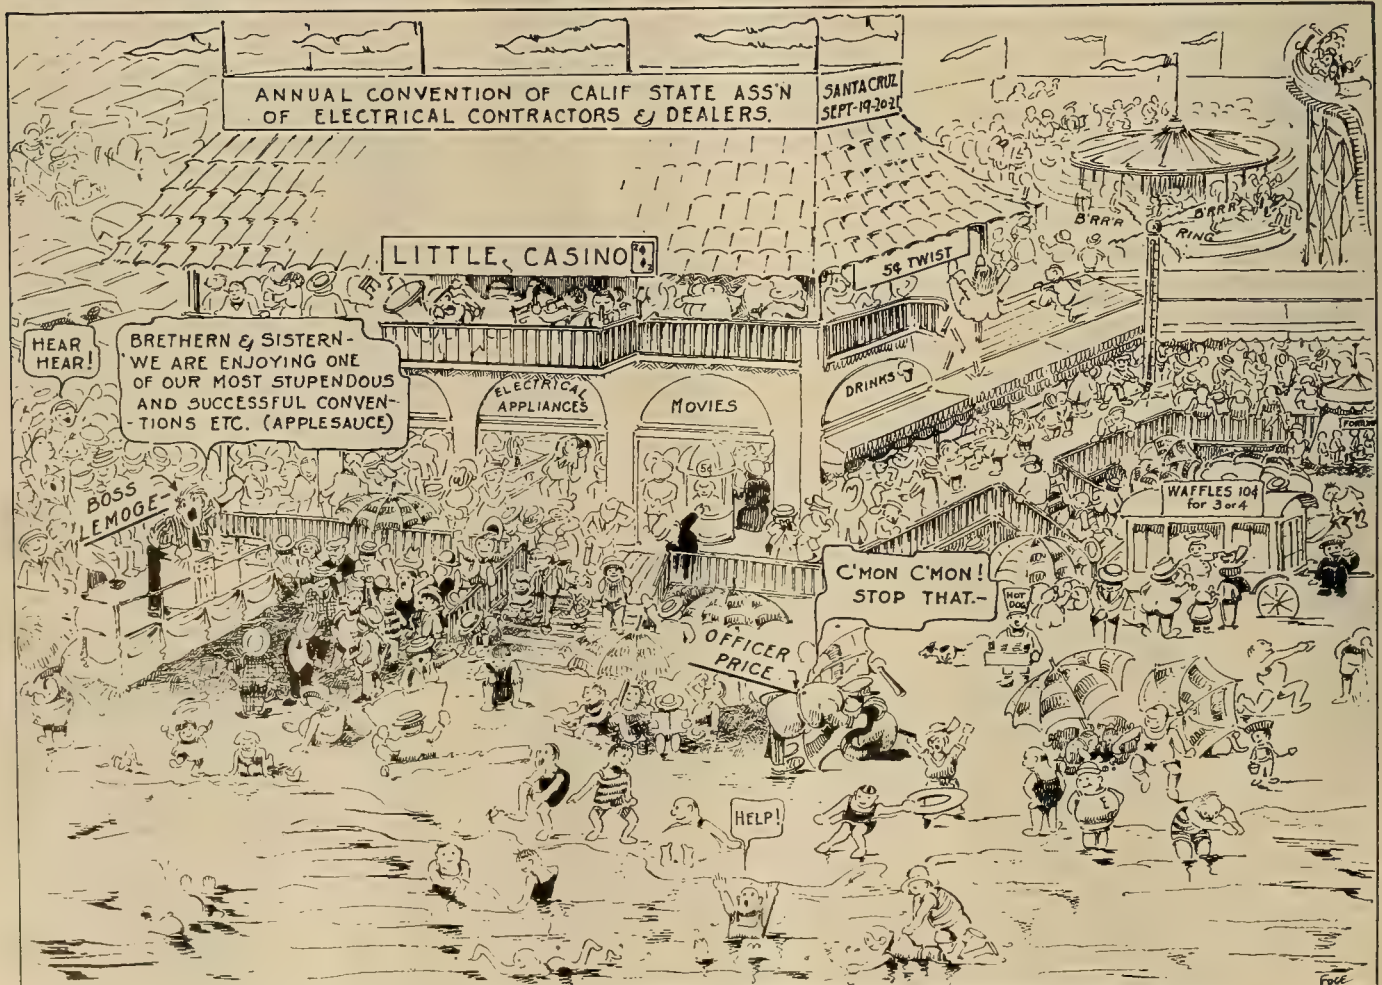 ANNUAL CONVENTION OF CALIF STATE ASS'N
OF ELECTRICAL CONTRACTORS & DEALERS.
SANTA CRUZ
SEPT-19-20-21
LITTLE CASINO
5¢ TWIST
B'RR'R
B'RRR
RING
HEAR
HEAR!
BRETHERN & SISTERN-
WE ARE ENJOYING ONE
OF OUR MOST STUPENDOUS
AND SUCCESSFUL CONVEN-
-TIONS ETC. (APPLESAUCE)
ELECTRICAL
APPLIANCES
MOVIES
DRINKS
5¢
BOSS
EMOGE
WAFFLES 10¢
for 3 or 4
C'MON C'MON!
STOP THAT.-
HOT
DOG
OFFICER
PRICE
HELP!
E